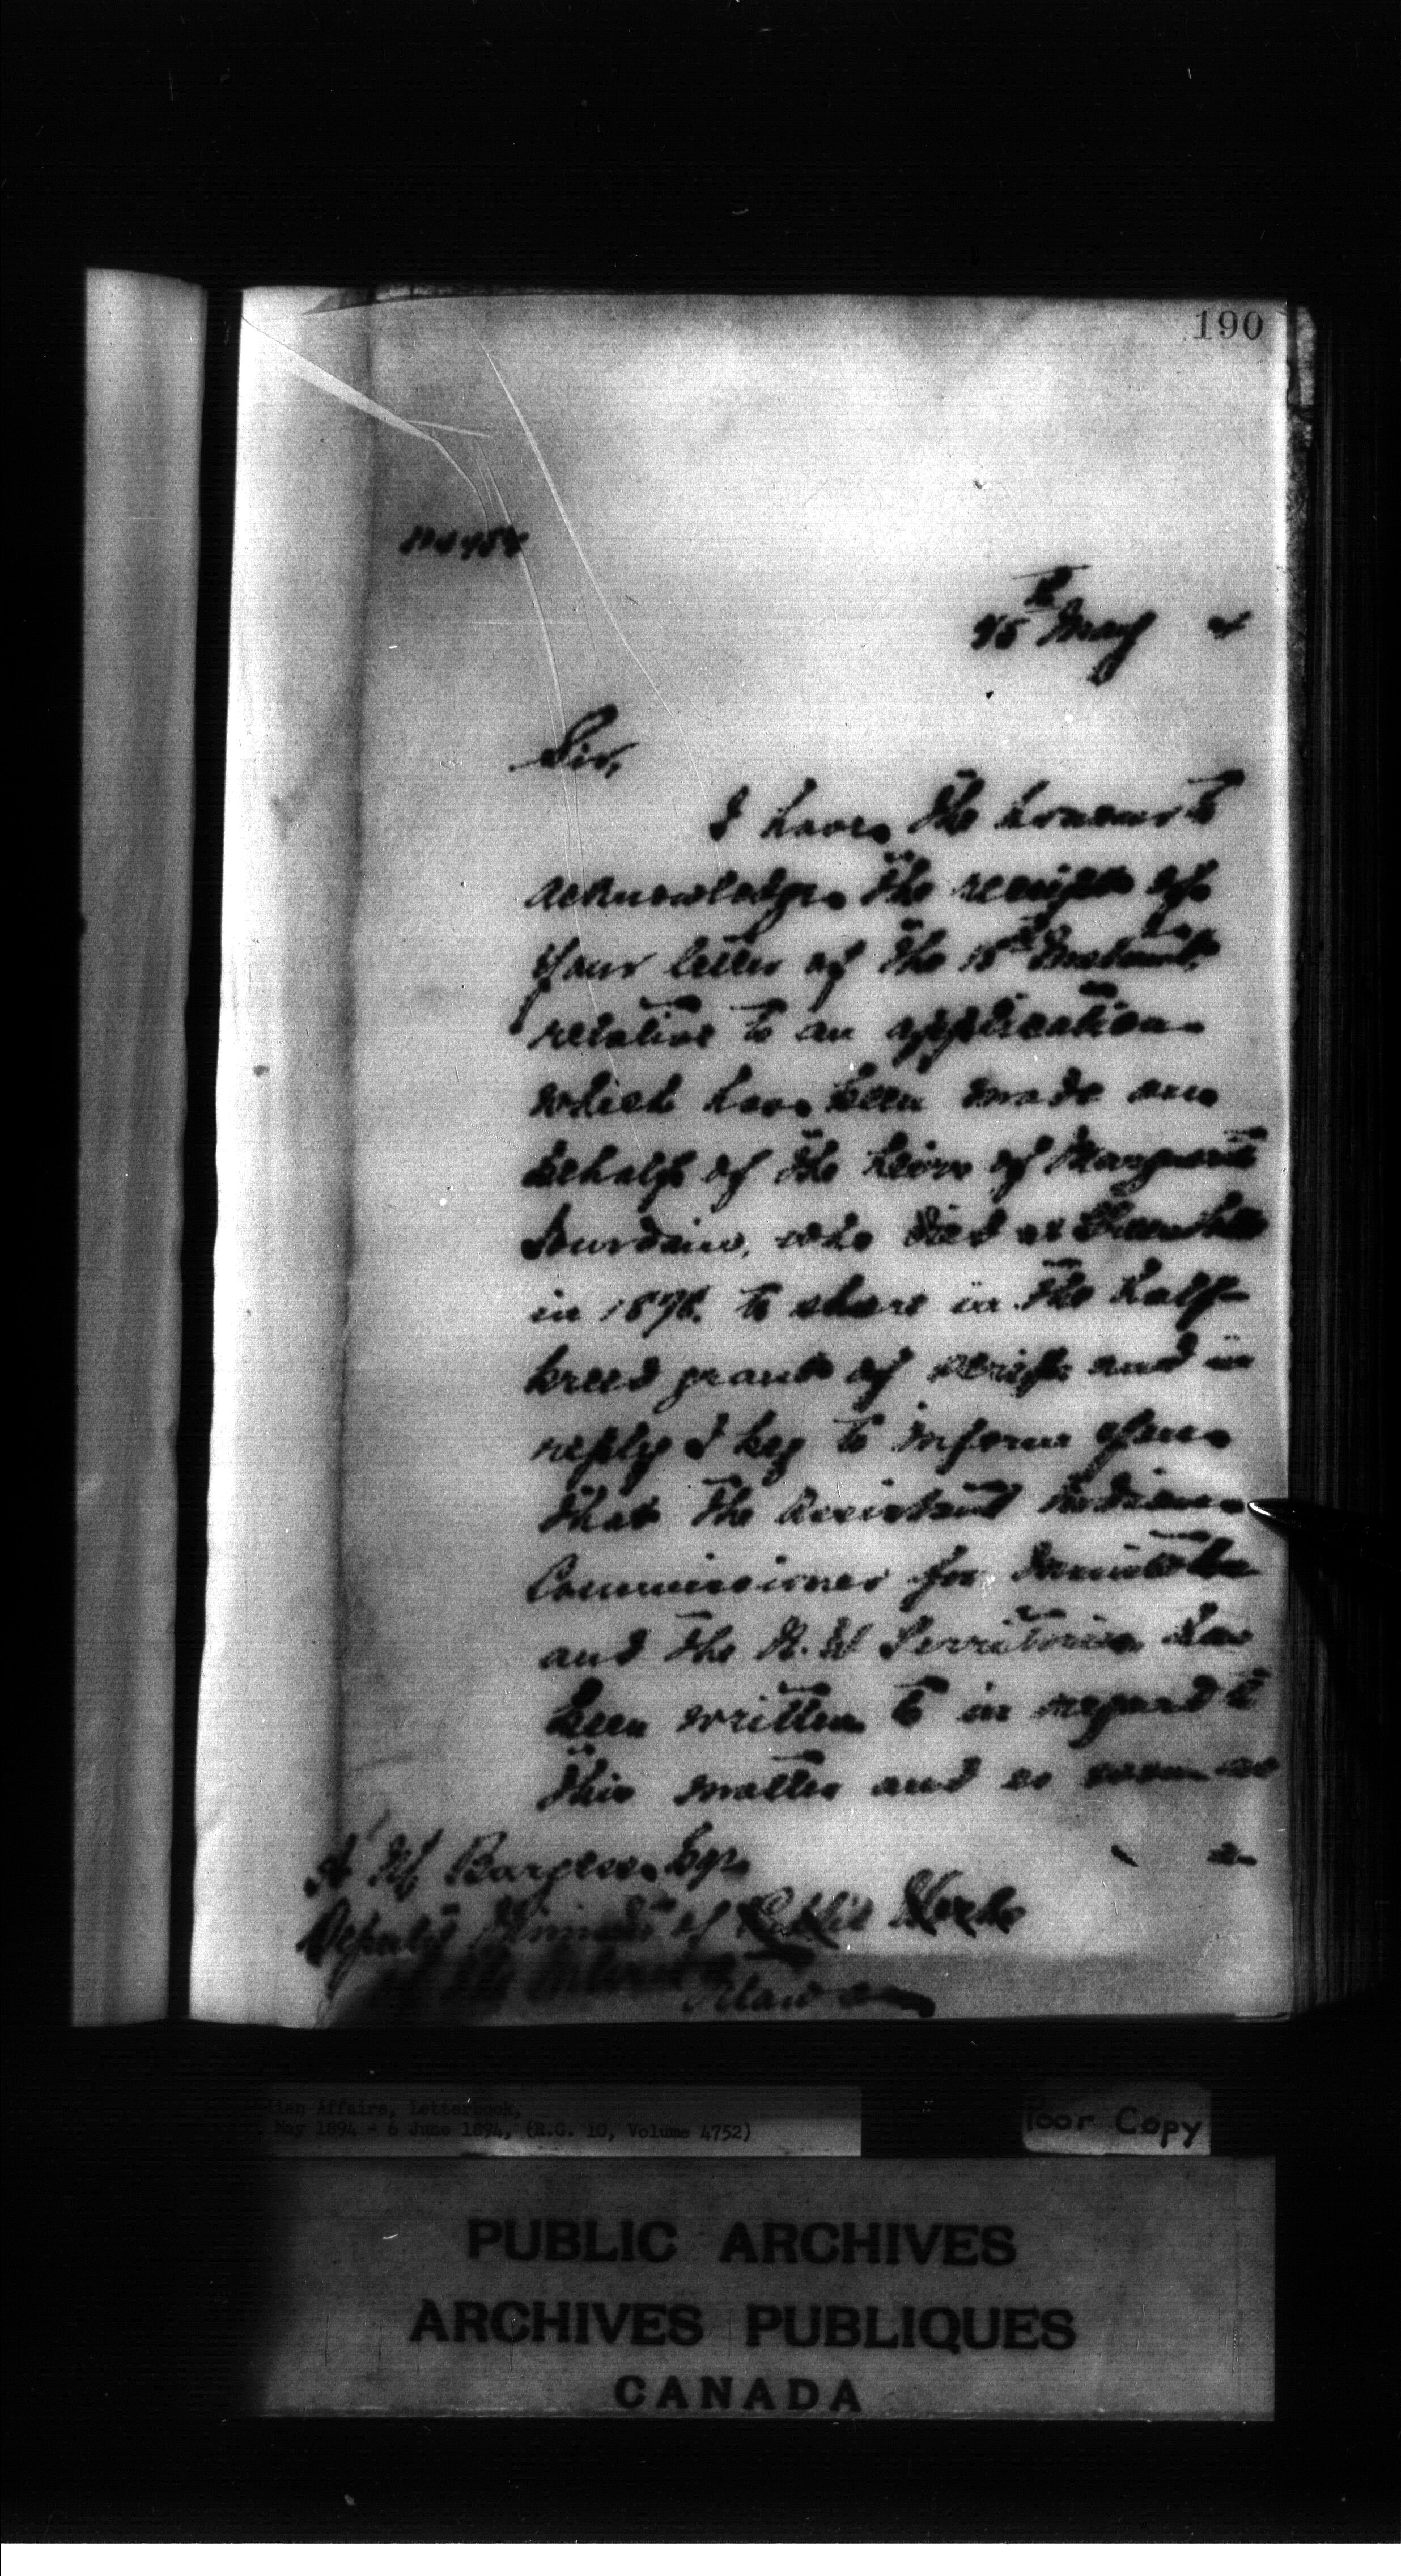 190
15th May 4
Sir,
I have the honour to
acknowledge the receipt of
your letter of the 15th Instant,
relative to an application
which has been made on
behalf of the heirs of Marguerite
Jourdain, who died at
in 1876. to share in the Half-
breed grant of scrip and in
reply I beg to inform you
that the Assistant Indian
Commissioner for Manitoba
and the N. W Territories has
been written to in regard to
this matter and so soon as
a
A M Burgess Esqr
Deputy Minister of Public Works
of the Interior
Ottawa
dian Affairs, Letterbook,
May 1894 - 6 June 1894, (R.G. 10, Volume 4752)
Poor Copy
PUBLIC ARCHIVES
ARCHIVES PUBLIQUES
CANADA